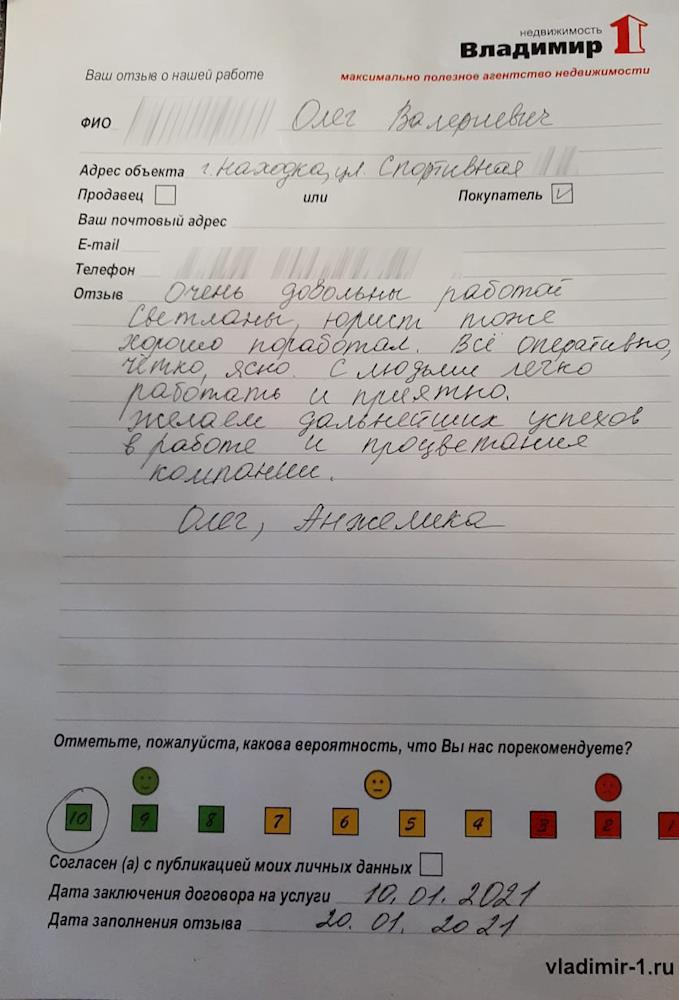 недвижимость
Владимир 1
максимально полезное агентство недвижимости
Ваш отзыв о нашей работе
ФИО Олег Валериевич
Адрес объекта г. Находка, ул. Спортивная
Продавец или Покупатель
Ваш почтовый адрес
E-mail
Телефон
Отзыв Очень довольны работой
Светланы, юрист тоже
хорошо поработал. Всё оперативно,
чётко, ясно. С людьми легко
работать и приятно.
желаем дальнейших успехов
в работе и процветания
компании.
Олег, Анжелика
Отметьте, пожалуйста, какова вероятность, что Вы нас порекомендуете?
10 9 8 7 6 5 4 3 2 1
Согласен (а) с публикацией моих личных данных
Дата заключения договора на услуги 10.01.2021
Дата заполнения отзыва 20.01.2021
vladimir-1.ru